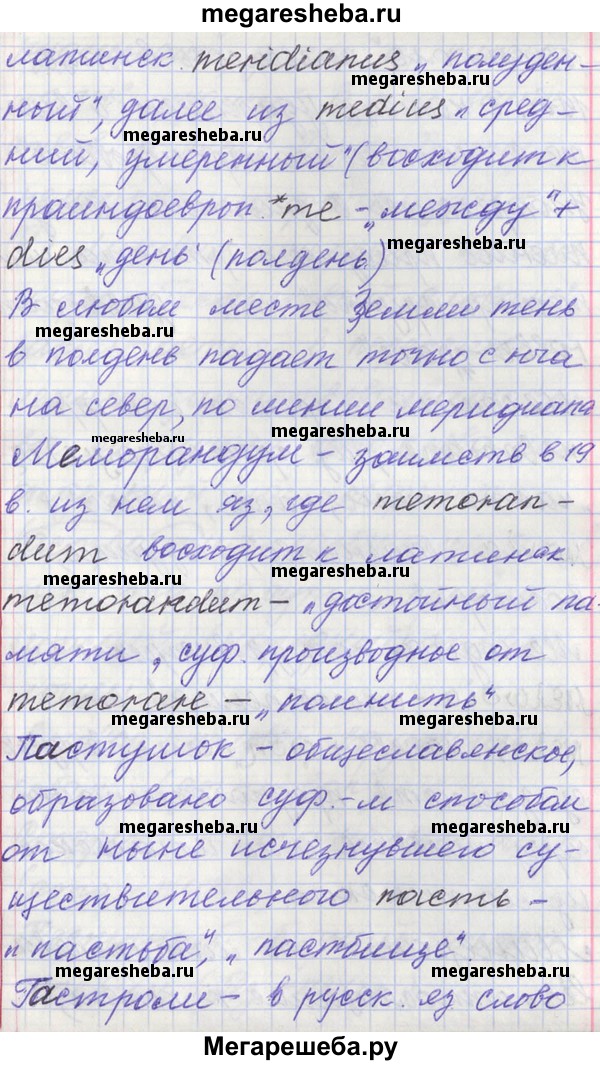 megaresheba.ru
латинск. meridianus „полуден-
megaresheba.ru
ный", далее из medius „сред-
megaresheba.ru
ний, умеренный" (восходит к
праиндоевроп. *me - „между" +
megaresheba.ru
dies „день" (полдень)
В любом месте Земли тень
megaresheba.ru
в полдень падает точно с юга
на север, по линии меридиана
megaresheba.ru
megaresheba.ru
Меморандум – заимств в 19
в. из нем яз, где memoran-
dum восходит к латинск.
megaresheba.ru
megaresheba.ru
memorandum – „достойный па-
мяти, суф. производное от
memorare – „помнить"
megaresheba.ru
megaresheba.ru
Пастушок – общеславянское,
образовано суф.-м способом
megaresheba.ru
megaresheba.ru
от ныне исчезнувшего су-
ществительного пасть –
„пастьба", „пастбище".
megaresheba.ru
megaresheba.ru
Гастроли – в русск. яз слово
Мегарешеба.ру